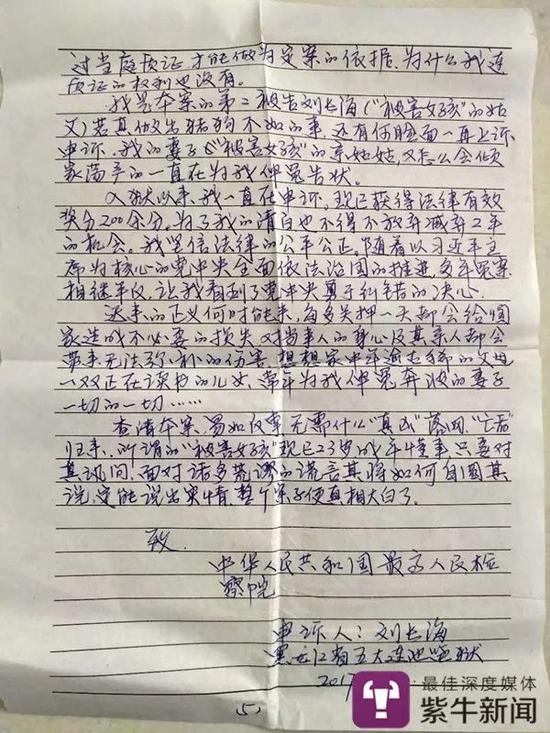 过当庭质证才能做为定案的依据,为什么我连
质证的权利也没有。
我是本案的第二被告刘长海("被害女孩"的姑
父)若真做出猪狗不如的事,还有何脸面一再上诉
申诉,我的妻子("被害女孩"的亲姑姑,又怎么会倾
家荡产的一直在为我伸冤告状。
入狱以来,我一直在申诉,现已获得法律有效
奖分200余分,为了我的清白也不得不放弃减弃2年
的机会。我坚信法律的公平公正,随着以习近平主
席为核心的党中央全面依法治国的推进,多年冤案
相继平反,让我看到了党中央勇于纠错的决心。
迟来的正义何时能来,每多关押一天都会给国
家造成不必要的损失,对当事人的身心及其亲人都会
带来无法弥补的伤害,想想家中年逾古稀的父母
一双正在读书的儿女,常年为我伸冤奔波的妻子
一切的一切……
查清本案,易如反掌,无需什么"真凶"落网"亡者"
归来,所谓的"被害女孩"现已23岁成年懂事,只要对
其讯问,面对诸多荒谬的谎言其将如何自圆其
说,定能说出实情,整个案子便真相大白了。
致
中华人民共和国最高人民检
察院
申诉人:刘长海
黑龙江省五大连池监狱
2017
(5)
最佳深度媒体
紫牛新闻